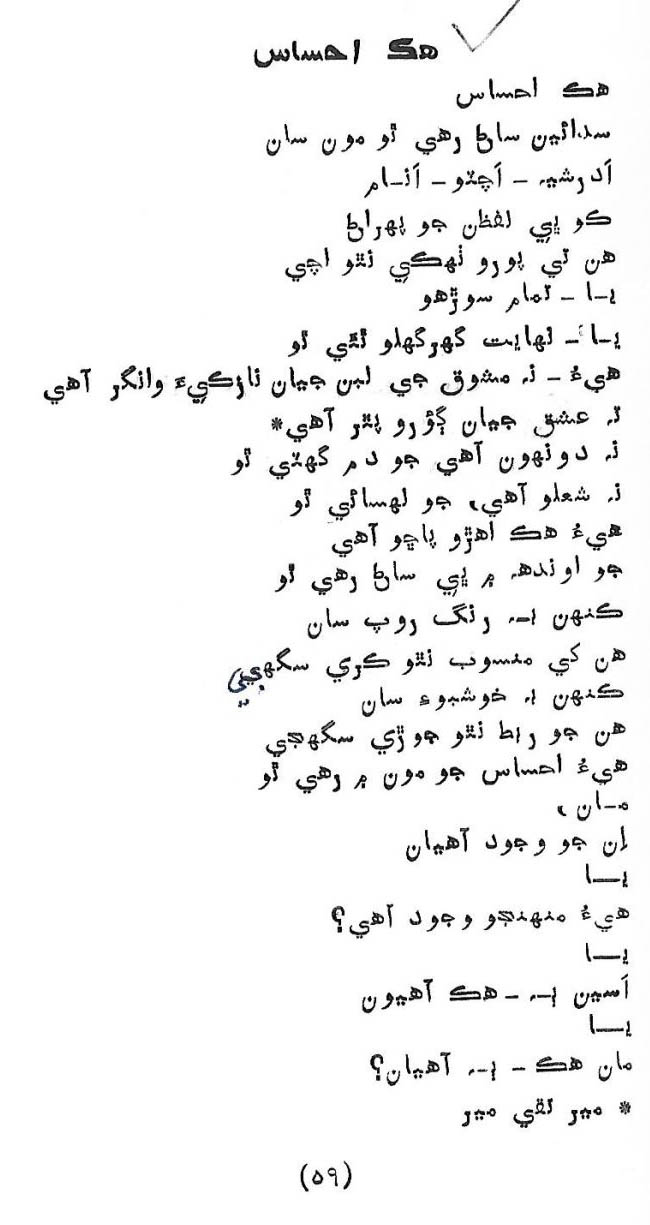 هڪ احساس
هڪ احساس
سدائين ساڻ رهي ٿو مون سان
اَدرشيہ - اَڇتو - اَنام
ڪو ڀي لفظن جو پهراڻ
هن تي پورو ٺهڪي نٿو اچي
يا - تمام سوڙهو
يا - نهايت گهرگهلو ٿئي ٿو
هيءُ - نہ مشوق جي لبن جيان نازڪيءَ وانگر آهي
نہ عشق جيان ڳؤرو پٿر آهي*
نہ دونهون آهي جو دم گهٽي ٿو
نہ شعلو آهي، جو لهسائي ٿو
هيءُ هڪ اهڙو پاڇو آهي
جو اونده ۾ ڀي ساڻ رهي ٿو
ڪنهن بہ رنگ روپ سان
هن کي منسوب نٿو ڪري سگهجي
ڪنهن بہ خوشبوءِ سان
هن جو ربط نٿو جوڙي سگهجي
هيءُ احساس جو مون ۾ رهي ٿو
مان،
اِن جو وجود آهيان
يا
هيءُ منهنجو وجود آهي؟
يا
اَسين ٻہ - هڪ آهيون
يا
مان هڪ - ٻہ آهيان؟
* مير تقي مير
(٥٩)